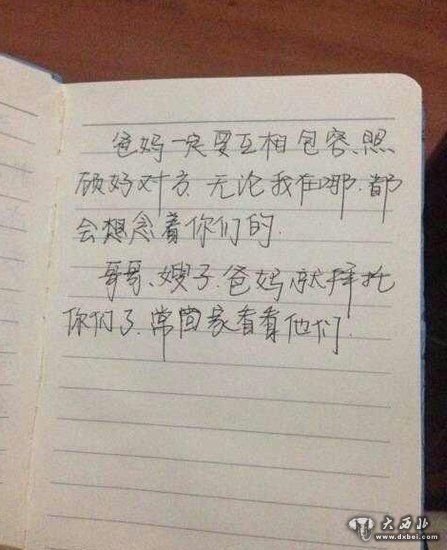 爸妈一定要互相包容、照
顾好对方.无论我在哪.都
会想念着你们的.
哥哥、嫂子.爸妈就拜托
你们了.常回家看看他们.
大西北
www.dxbei.com